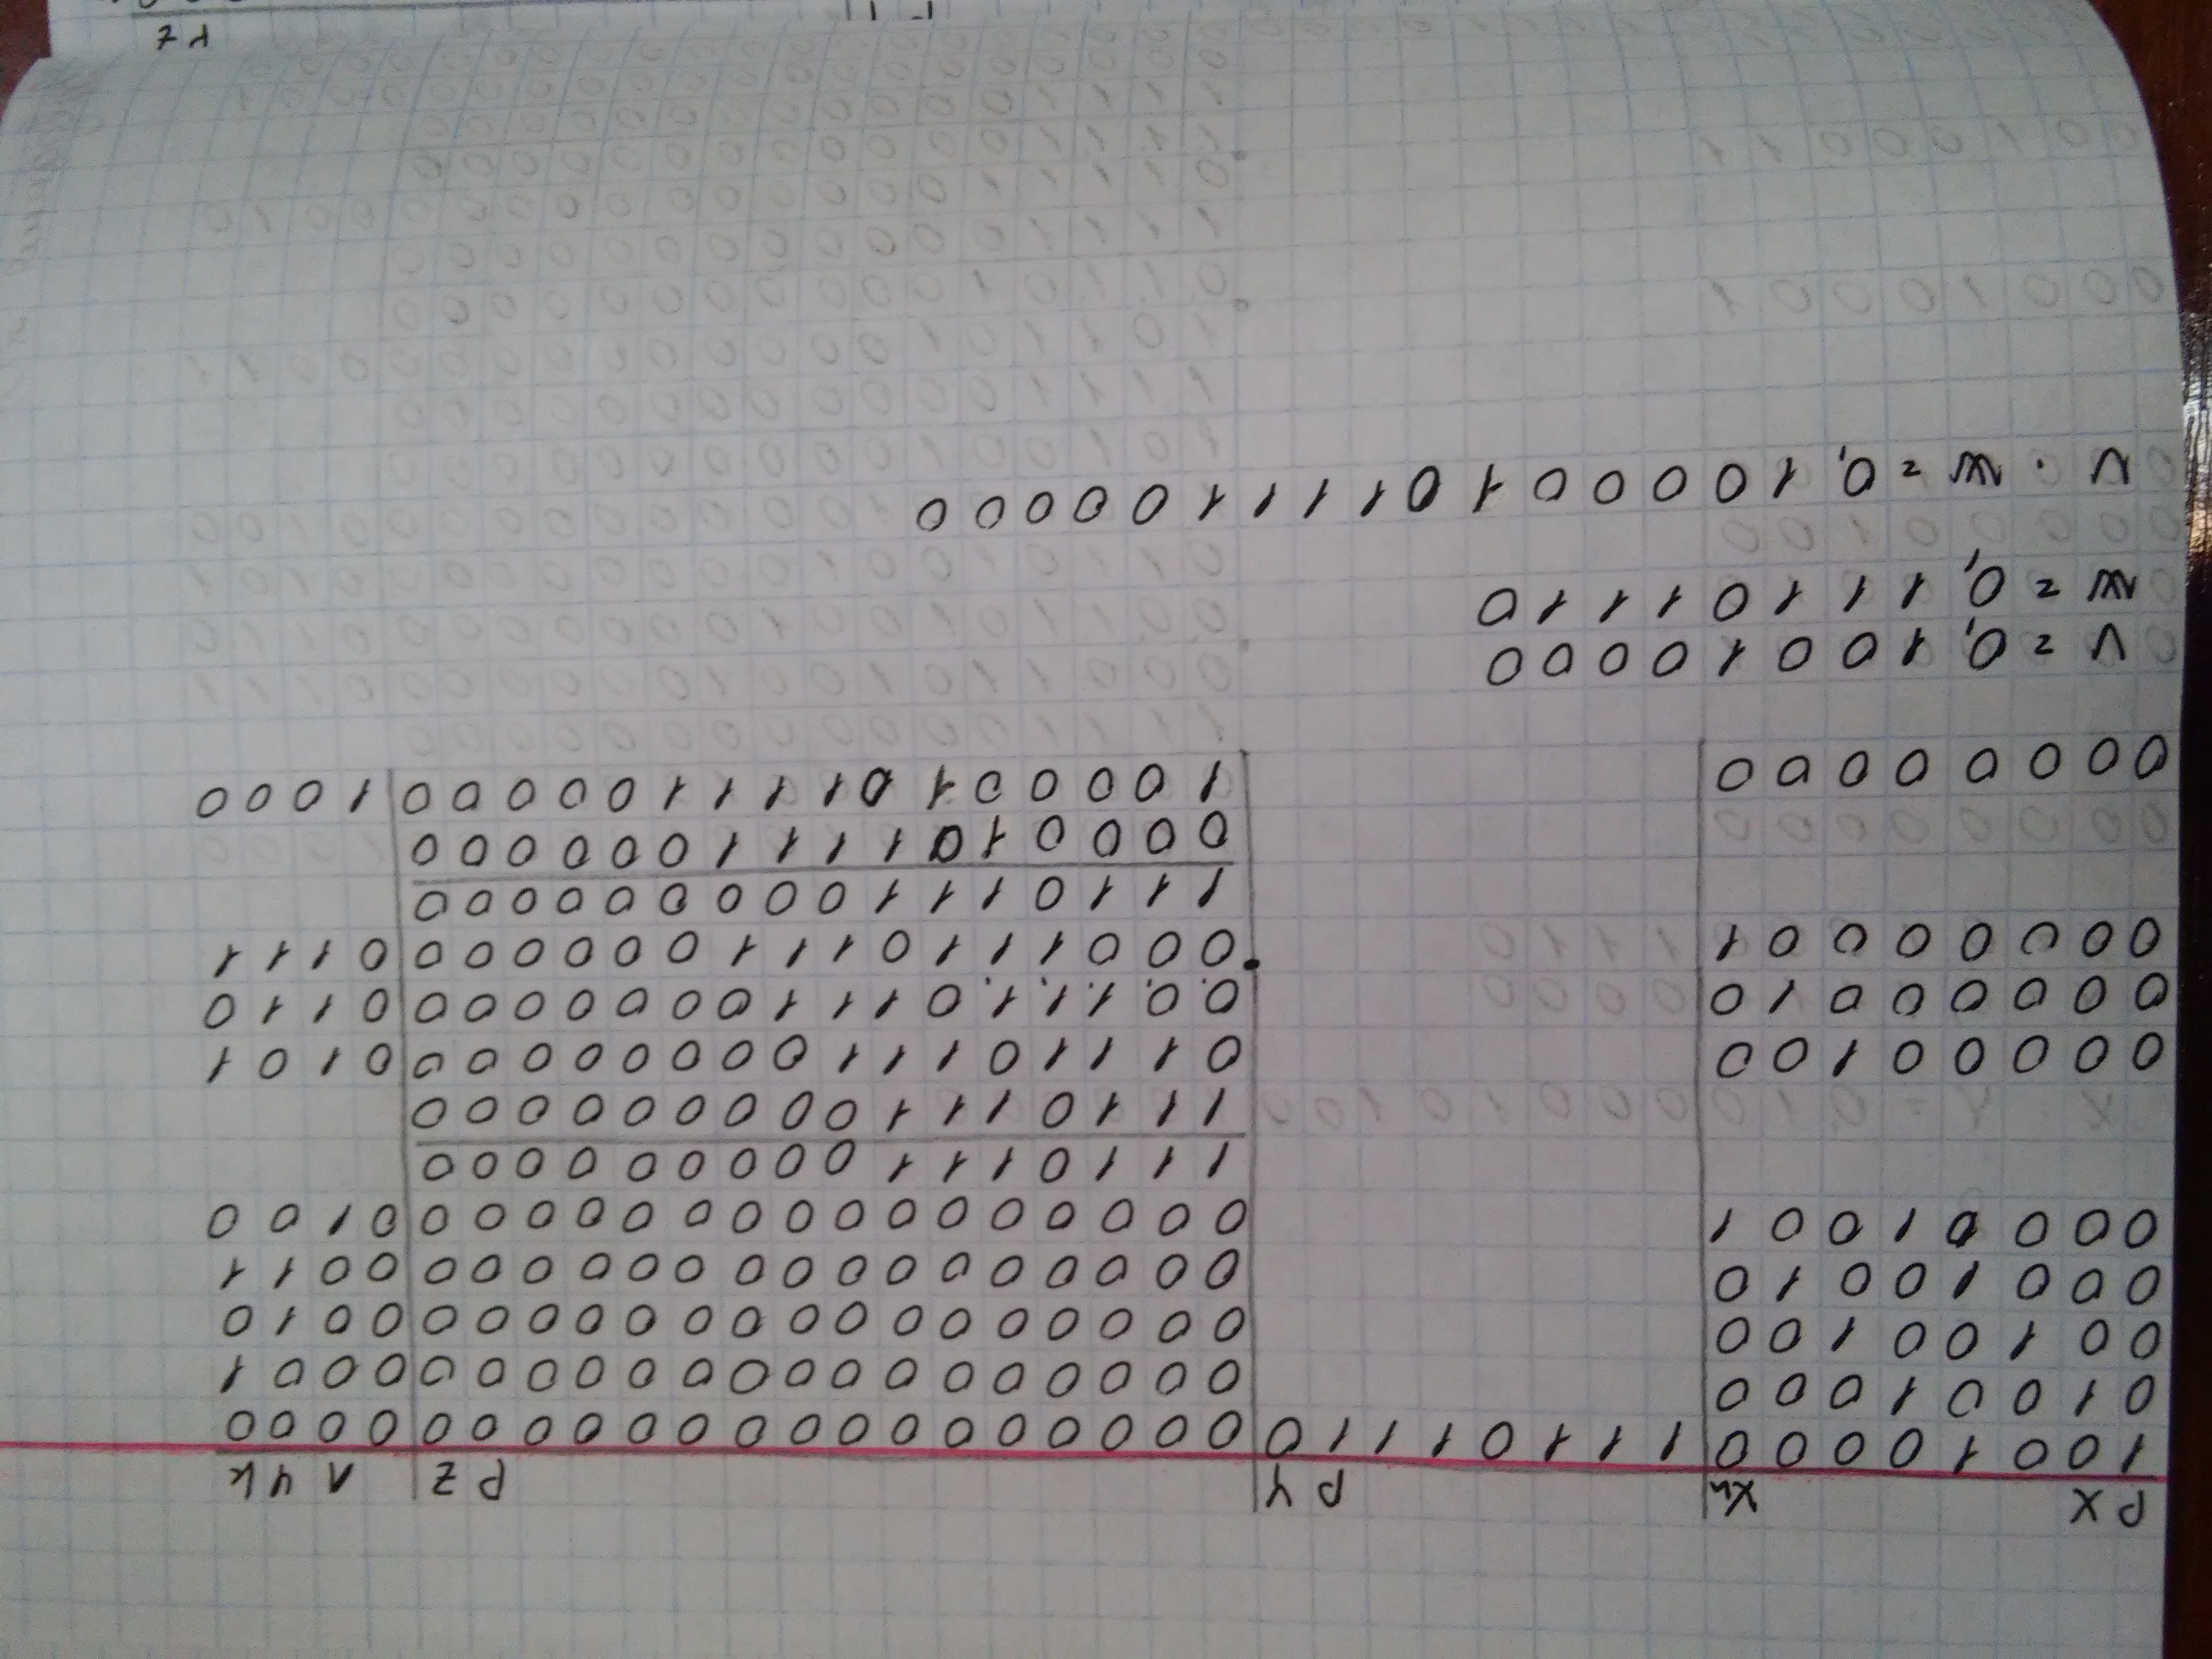 РХ Xn РY РZ ЛЧК
10010000 11101110 0000000000000000 0000
01001000 0000000000000000 0001
00100100 0000000000000000 0010
00010010 0000000000000000 0011
00001001 0000000000000000 0100
1110111000000000
1110111000000000
00000100 0111011100000000 0101
00000010 0.0.1.1.1.01110000000 0110
00000001 0001110111000000 0111
1110111000000000
0000101111000000
00000000 1000010111100000 1000
V = 0,10010000
W = 0,11101110
V · W = 0,1000010111100000